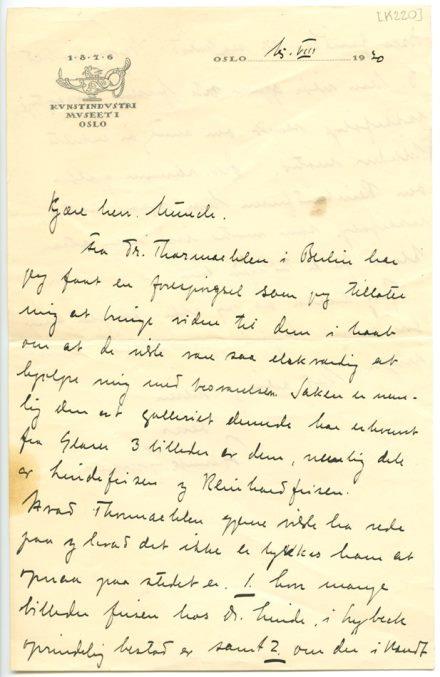 [K220]
1·8·7·6
KVNSTINDVSTRI
MVSEET I
OSLO
OSLO 15. VIII 1930
Kjære herr. Munch.
Fra Dr. Thormaehlen i Berlin har
jeg faat en forespørgsel som jeg tillater
mig at bringe videre til dem i haab
om at de vilde være saa elskværdig at
hjælpe mig med besvarelsen. Saken er nem-
lig den at galleriet dernede har erhvervet
fra Glaser 3 billeder av dem, nemlig dele
av Lindefrisen og Reinhardfrisen.
Hvad Thormaehlen gjerne vilde ha rede
paa og hvad det ikke er lykkes ham at
opnaa paa stedet er 1. hvor mange
billeder frisen hos dr. Linde, i Lybeck
oprindelig bestod av samt 2. om der i